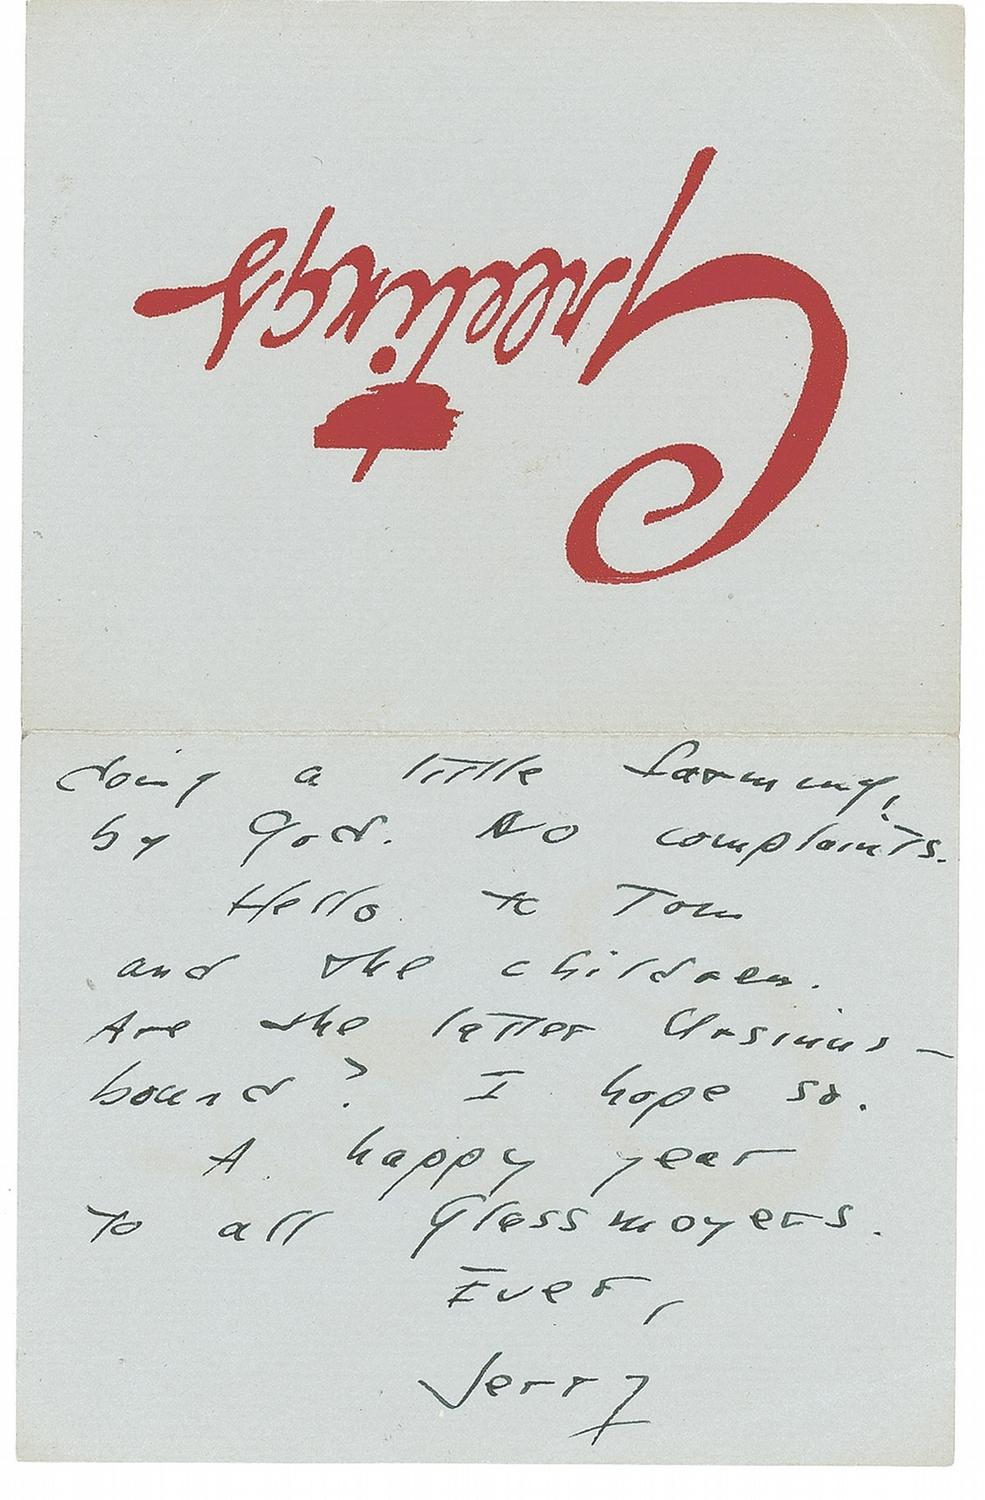 Greetings
doing a little farming,
by God. No complaints.
Hello to Tom
and the children.
Are the latter Ursinus-
bound? I hope so.
A happy year
to all Glassmoyers.
Ever,
Jerry